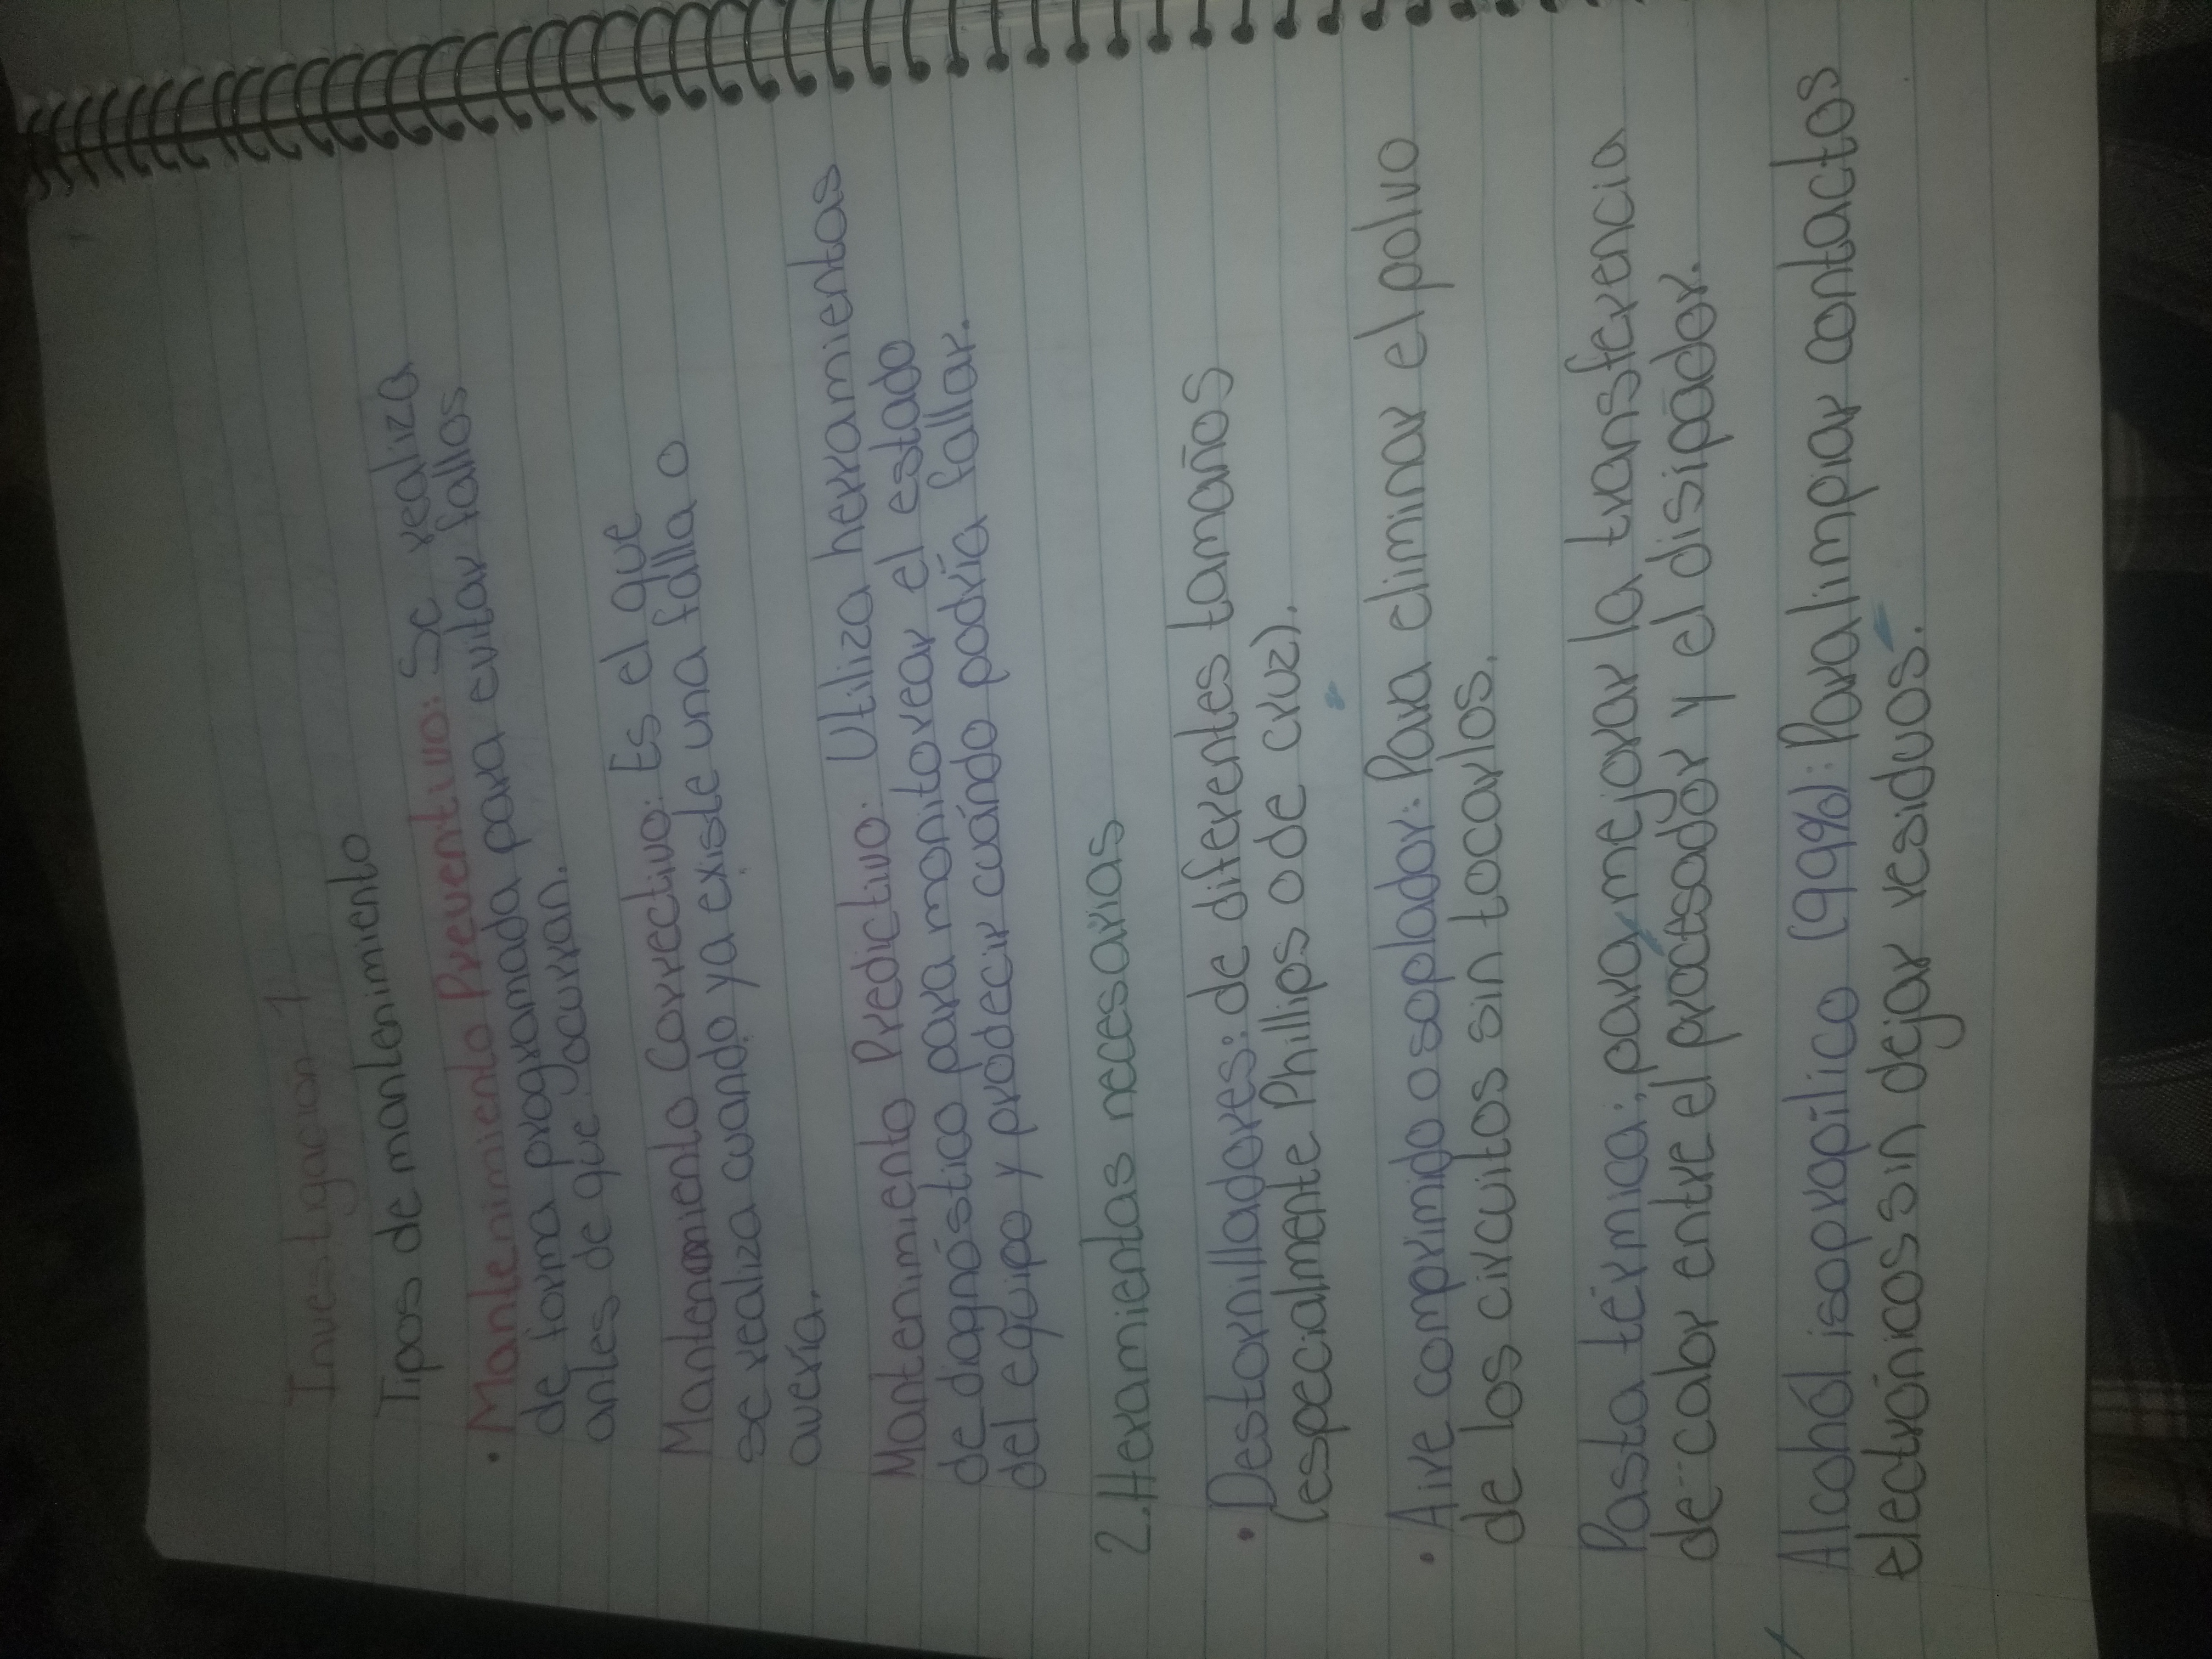 Investigación 1
Tipos de mantenimiento
• Mantenimiento Preventivo: Se realiza
de forma programada para evitar fallos
antes de que ocurran.
Mantenomiento Correctivo: Es el que
se realiza cuando ya existe una falla o
avería.
Mantenimiento Predictivo: Utiliza herramientas
de diagnóstico para monitorear el estado
del equipo y prodecir cuándo podría fallar.
2. Heramientas necesarias
• Destornilladores: de diferentes tamaños
(especialmente Phillips o de cruz).
• Aire comprimido o soplador: Para eliminar el polvo
de los circuitos sin tocarlos.
Pasta térmica: para mejorar la transferencia
de calor entre el procesador y el disipador.
Alcohól isopropílico (99%): Para limpiar contactos
electrónicos sin dejar residuos.